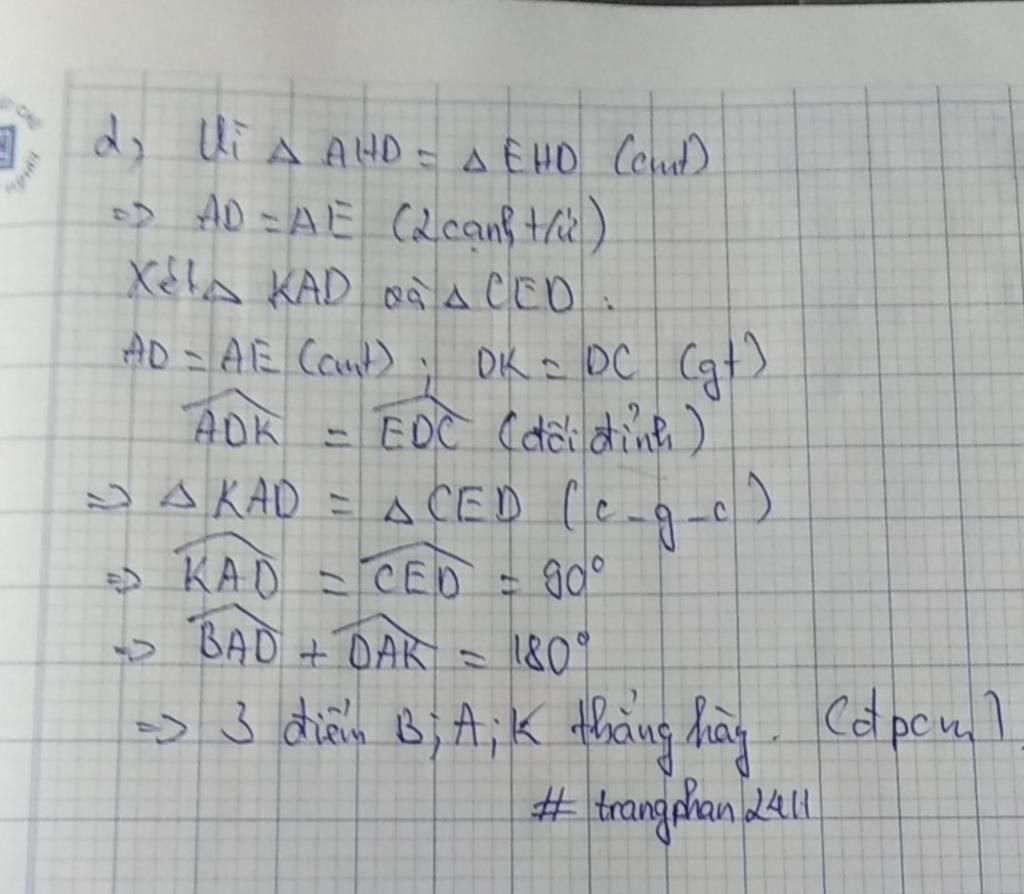 d, Vì △ AHD = △ EHD (cmt)
=> AD = AE (2 cạnh t/ứ)
Xét △ KAD và △ CED :
AD = AE (cmt) ; DK = DC (gt)
\widehat{ADK} = \widehat{EDC} (đối đỉnh)
=> △ KAD = △ CED (c-g-c)
=> \widehat{KAD} = \widehat{CED} = 90°
=> \widehat{BAD} + \widehat{DAK} = 180°
=> 3 điểm B; A; K thẳng hàg. (đpcm)
# trangphan2411